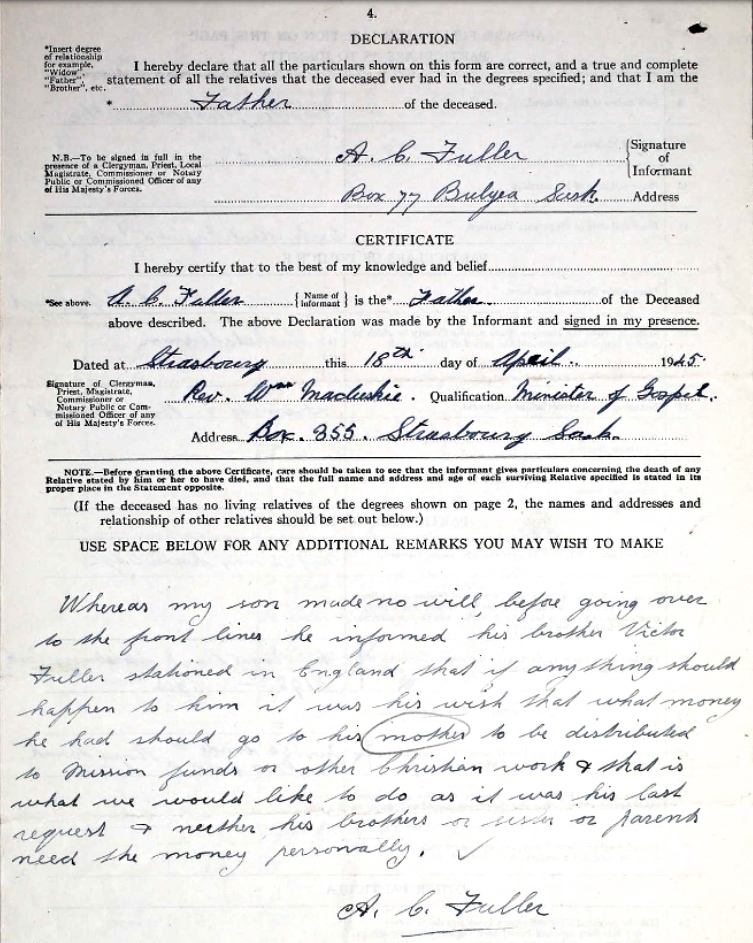 4.
DECLARATION
*Insert degree
of relationship
for example,
"Widow",
"Father",
"Brother", etc.
I hereby declare that all the particulars shown on this form are correct, and a true and complete
statement of all the relatives that the deceased ever had in the degrees specified; and that I am the
* Father of the deceased.
N.B.—To be signed in full in the
presence of a Clergyman, Priest, Local
Magistrate, Commissioner or Notary
Public or Commissioned Officer of any
of His Majesty's Forces.
A. C. Fuller {Signature of Informant
Box 77 Bulyea Sask. Address
CERTIFICATE
I hereby certify that to the best of my knowledge and belief
*See above. A. C. Fuller {Name of Informant} is the* Father. of the Deceased
above described. The above Declaration was made by the Informant and signed in my presence.
Dated at Strasbourg this 18th day of April 1945.
Signature of Clergyman,
Priest, Magistrate,
Commissioner or
Notary Public or Com-
missioned Officer of any
of His Majesty's Forces.
Rev. Wm Macluskie. Qualification Minister of Gospel.
Address Box. 355. Strasbourg Sask.
NOTE.—Before granting the above Certificate, care should be taken to see that the informant gives particulars concerning the death of any
Relative stated by him or her to have died, and that the full name and address and age of each surviving Relative specified is stated in its
proper place in the Statement opposite.
(If the deceased has no living relatives of the degrees shown on page 2, the names and addresses and
relationship of other relatives should be set out below.)
USE SPACE BELOW FOR ANY ADDITIONAL REMARKS YOU MAY WISH TO MAKE
Whereas my son made no will, before going over
to the front lines he informed his brother Victor
Fuller stationed in England that if anything should
happen to him it was his wish that what money
he had should go to his mother to be distributed
to Mission funds or other Christian work & that is
what we would like to do as it was his last
request & neither his brothers or sister or parents
need the money personally.
A. C. Fuller